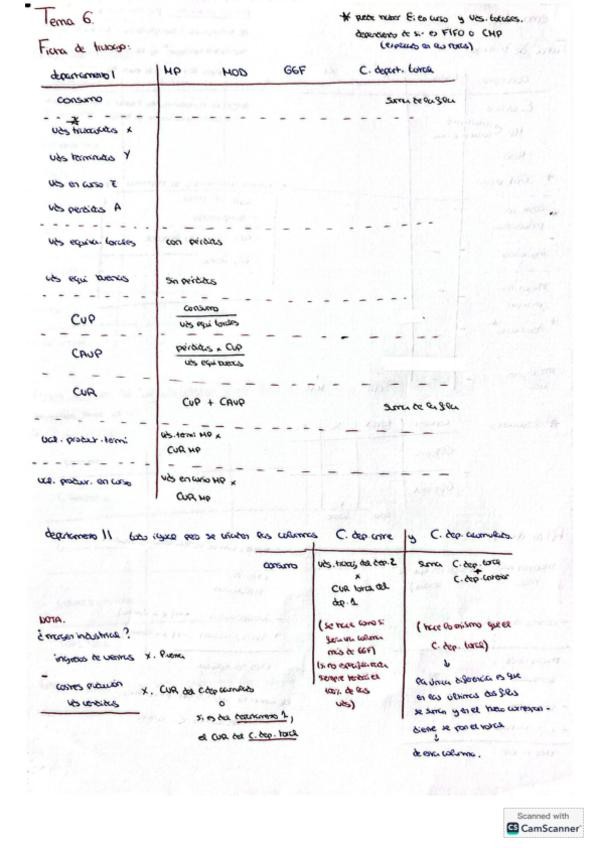 Tema 6.
Ficha de trabajo:
* Puede haber Ei en curso y uds. totales.
dependiendo de si es FIFO o CMP
departamento I MP MOD GGF C. depart. total
consumo suma de la fila
*
uds trabajadas x
uds terminadas Y
uds en curso Z
uds perdidas A
uds equiva. totales con pérdidas
uds equi buenas sin pérdidas
CUP consumo
uds equi totales
CAUP pérdidas x CUP
uds equi buenas
CUR CUP + CAUP suma de la fila
val. produc. termi uds. termi MP x
CUR MP
val. produc. en curso uds en curso MP x
CUR MP
departamento II todo igual pero se añaden las columnas C. dep ante y C. dep. acumulado.
consumo uds. trabaj. del dep. 2
x
CUR total del
dep. 1
suma C. dep. total
+
C. dep. anterior
(se hace como si
fuera una columna
más de GGF)
(si no especifica nada
siempre tendrá el
100% de las
uds)
(hace lo mismo que el
C. dep. total)
↓
la única diferencia es que
en las últimas dos filas
se suma y en el
se pon el total
↓
de esa columna.
NOTA.
¿margen industrial?
ingresos de ventas x. Pventa
-
costes producción
uds vendidas
x. CUR del C.dep acumulado
o
si es del departamento 1,
el CUR del C. dep. total
Scanned with
CS CamScanner